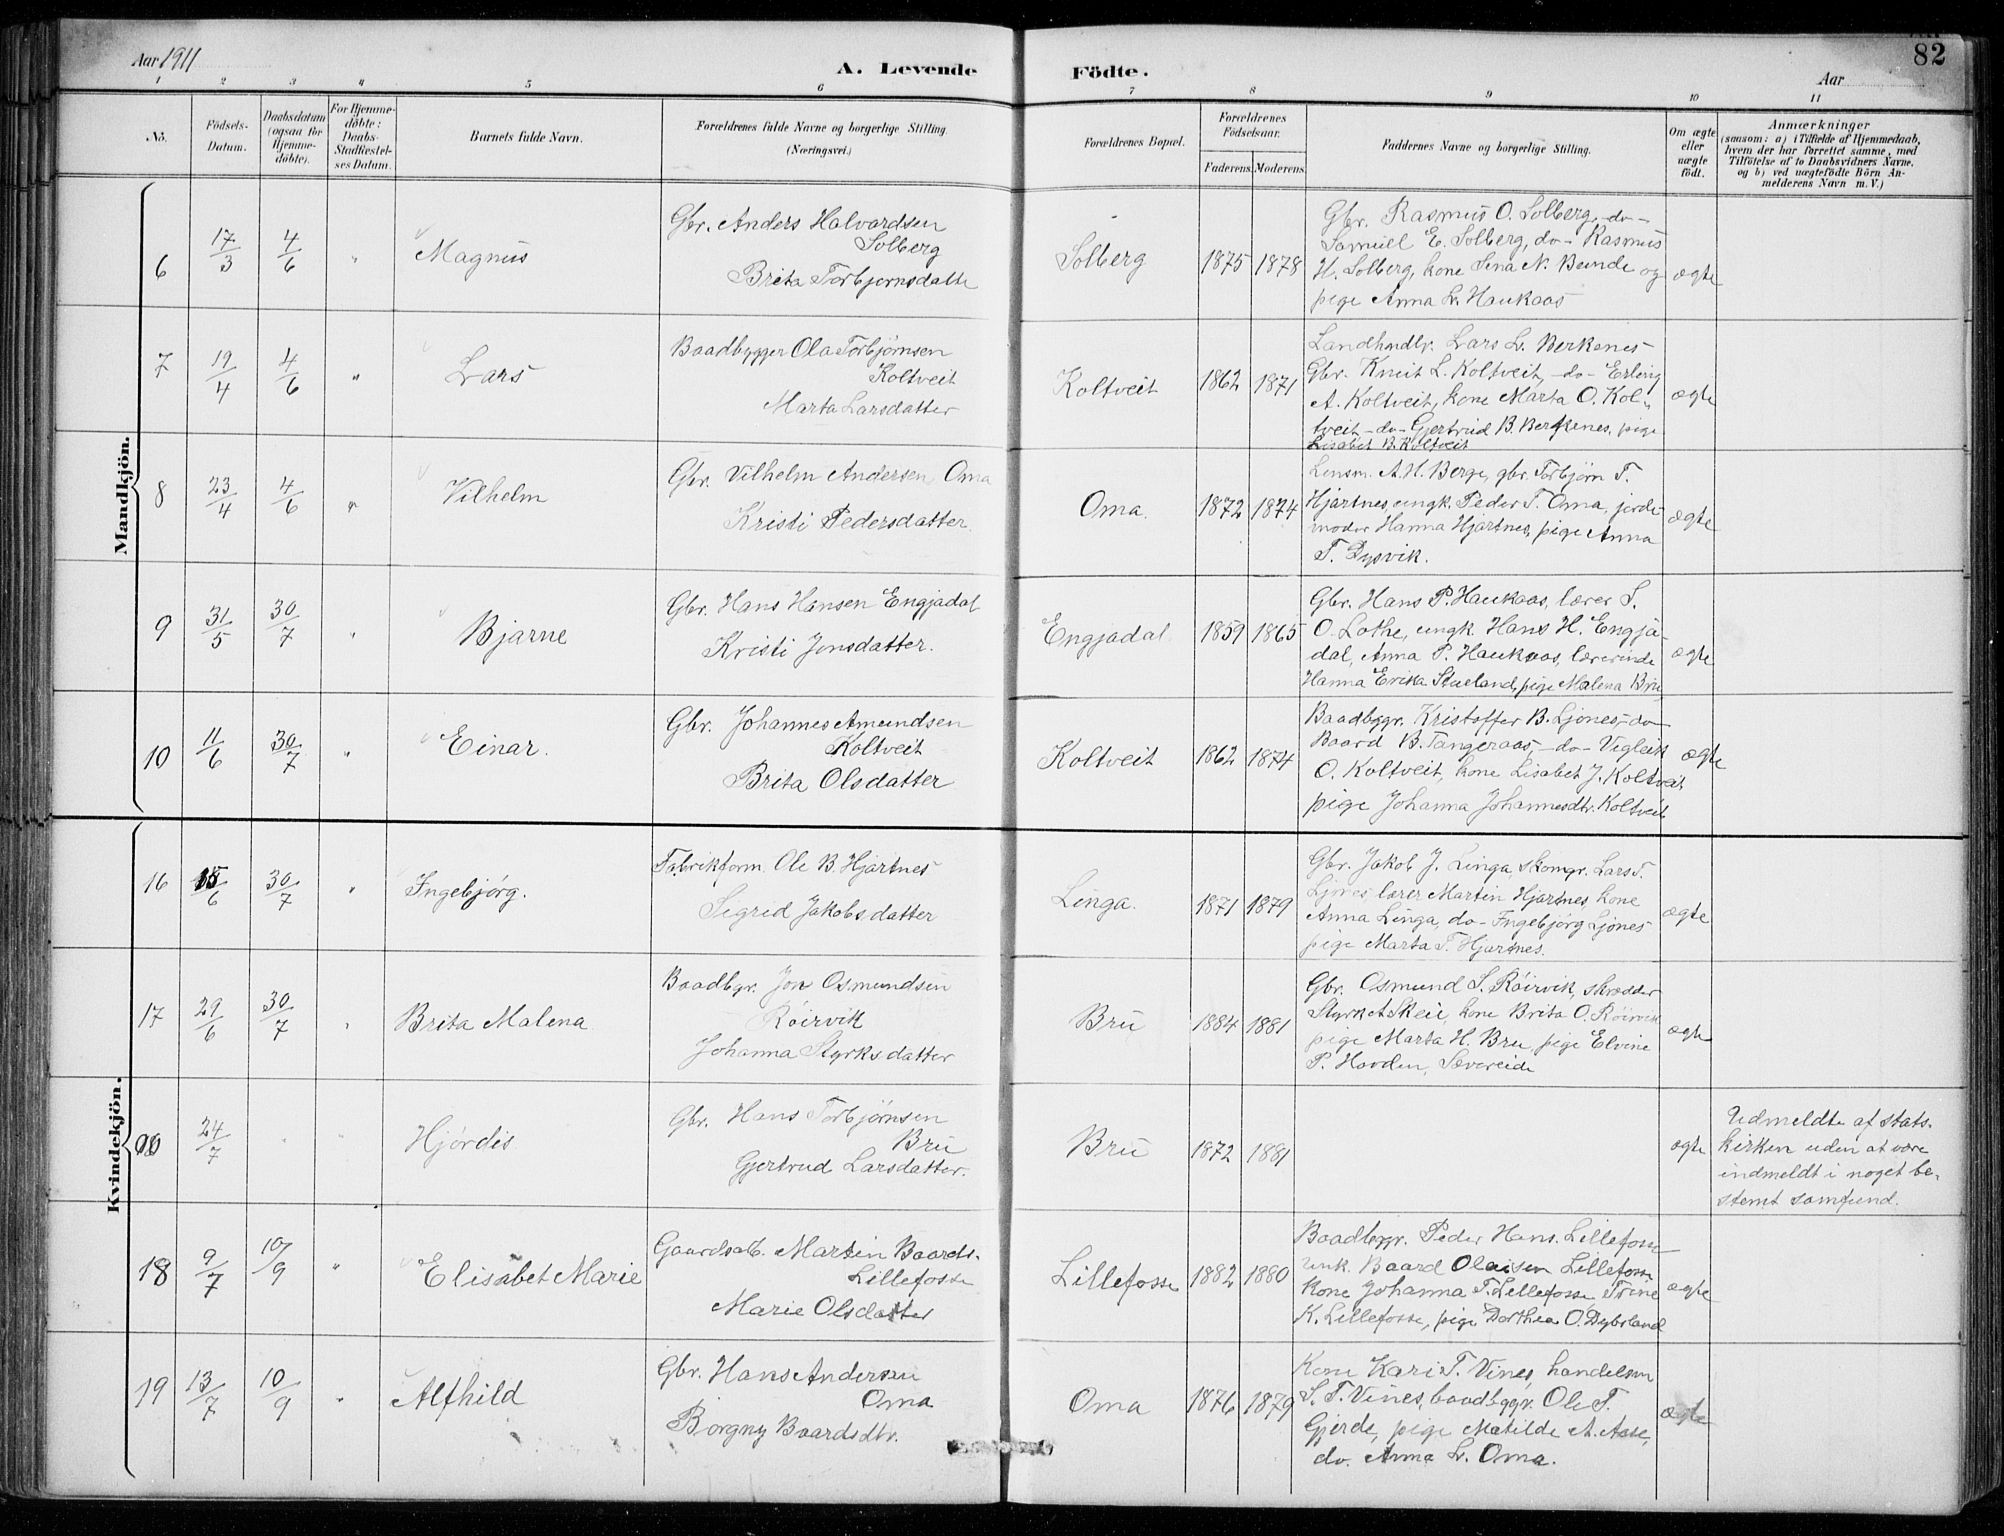 Aar 1911
A. Levende Födte.
Aar
82
1 2 3 4 5 6 7 8 9 10 11
No.
Födsels-
Datum.
Daabsdatum
(ogsaa för
Hjemme-
döbte).
For Hjemme-
döbte:
Daabs-
Stadfæstel-
ses Datum.
Barnets fulde Navn.
Forældrenes fulde Navne og borgerlige Stilling.
(Næringsvei.)
Forældrenes Bopæl.
Forældrenes
Födselsaar.
Faderens. Moderens.
Faddernes Navne og borgerlige Stilling.
Om ægte
eller
uægte
födt.
Anmærkninger
(saasom: a) i Tilfælde af Hjemmedaab,
hvem der har forrettet samme, med
Tilföielse af to Daabsvidners Navne,
og b) ved uægtefödte Börn An-
melderens Navn m. V.)
Mandkjön.
6 17/3 4/6 " Magnus
Gbr. Anders Halvardsen
Solberg
Brita Torbjørnsdatte
Solberg 1875 1878
Gbr. Rasmus O. Solberg, do-
Samuel E. Solberg, do- Rasmus
H. Solberg, kone Sena N. Bunde og
pige Anna L. Haukaas
ægte
7 19/4 4/6 " Lars
Baadbygger Ola Torbjørnsen
Koltveit
Marta Larsdatter
Koltveit 1862 1871
Landhndlr. Lars L. Berkenes
Gbr. Knut L. Koltveit, -do- Erling
A. Koltveit, kone Marta O. Kol-
tveit -do- Gjertrud B. Berkenes, pige
Lisabet B. Koltveit
ægte
8 23/4 4/6 " Vilhelm
Gbr. Vilhelm Andersen Oma
Kristi Pedersdatter
Oma. 1872 1874
Lensm. A. H. Berge, gbr. Torbjørn T.
Hjartnes, ungk. Peder T. Oma, jorde
moder Hanna Hjartnes, pige Anna
T. Dysvik.
ægte
9 31/5 30/7 " Bjarne
Gbr. Hans Hansen Engjadal
Kristi Jonsdatter.
Engjadal 1859 1865
Gbr. Hans P. Haukaas, lærer S.
O. Lothe, ungk. Hans H. Engja-
dal, Anna P. Haukaas, lærerinde
Hanna Erika Stueland, pige Malena Bru
ægte
10 11/6 30/7 " Einar.
Gbr. Johannes Amundsen
Koltveit
Brita Olsdatter
Koltveit 1862 1874
Baadbggr. Kristoffer B. Ljones, do
Baard B. Tangeraas, -do- Vigleik
O. Koltveit, kone Lisabet J. Koltveit
pige Johanna Johannesdtr. Koltveit
ægte
Kvindekjön.
16 15/6 30/7 " Ingebjørg.
Fabrikform. Ole B. Hjartnes
Sigrid Jakobsdatter
Linga. 1871 1879
Gbr. Jakob J. Linga, skomgr. Lars T.
Ljones, lærer Martin Hjartnes, kone
Anna Linga, do- Ingebjørg Ljones
pige Marta T. Hjartnes.
ægte
17 29/6 30/7 " Brita Malena
Baadbgr. Jon Osmundsen
Röirvik
Johanna Styrksdatter
Bru 1884 1881
Gbr. Osmund S. Röirvik, skrædder
Styrk A Skeie, kone Brita O. Röirvik
pige Marta H. Bru, pige Elvine
P. Hovden, Sævereide
ægte
24/7 " " Hjørdis
Gbr. Hans Torbjørnsen
Bru
Gjertrud Larsdatter.
Bru 1872 1881
ægte
Udmeldte af stats-
kirken uden at være
indmeldt i noget be-
stemt samfund.
18 9/7 10/9 " Elisabet Marie
Gaardsab. Martin Baards.
Lillefosse
Marie Olsdatter
Lillefosse 1882 1880
Baadbggr. Peder Hans. Lillefosse
unk. Baard Olaisen Lillefosse
kone Johanna T. Lillefosse, Trine
K. Lillefosse, pige Dorthea O. Dybsland
ægte
19 13/7 10/9 " Alfhild
Gbr. Hans Andersen
Oma
Borgny Baardsdtr.
Oma 1876 1879
Kone Kari T. Vines, handelsm
S. T. Vines, baadbggr. Ole T.
Gjerde, pige Matilde A. Aase,
do. Anna L. Oma.
ægte